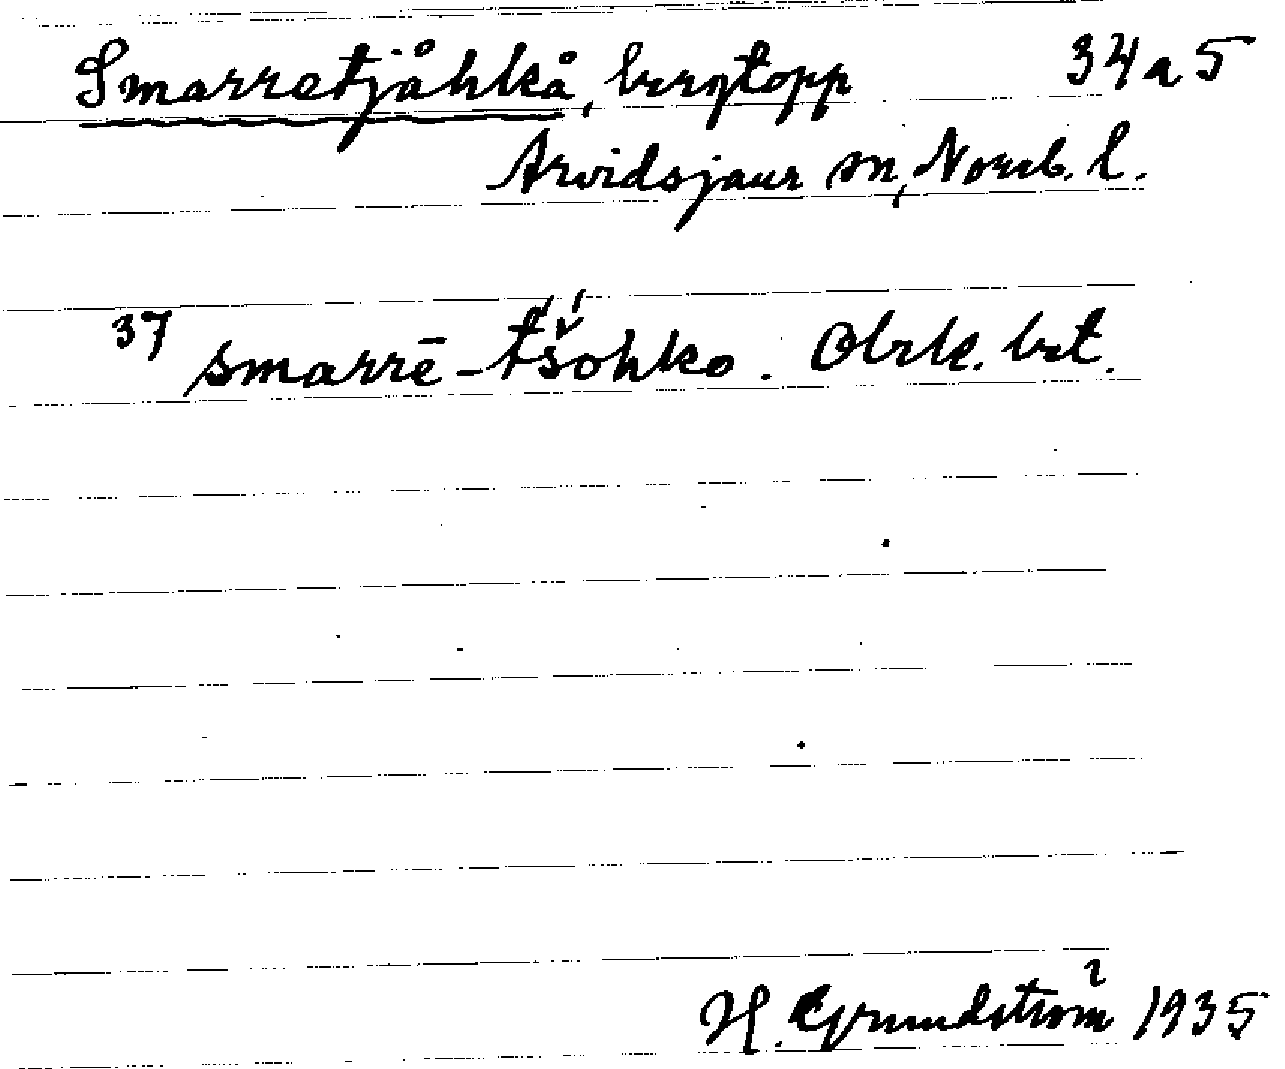 Smarretjåhkå, bergtopp 34 a 5
Arvidsjaur sn, Norrb. l.
37 smarrē-t́š́ohko. Obek. bet.
H. Grundström 1935